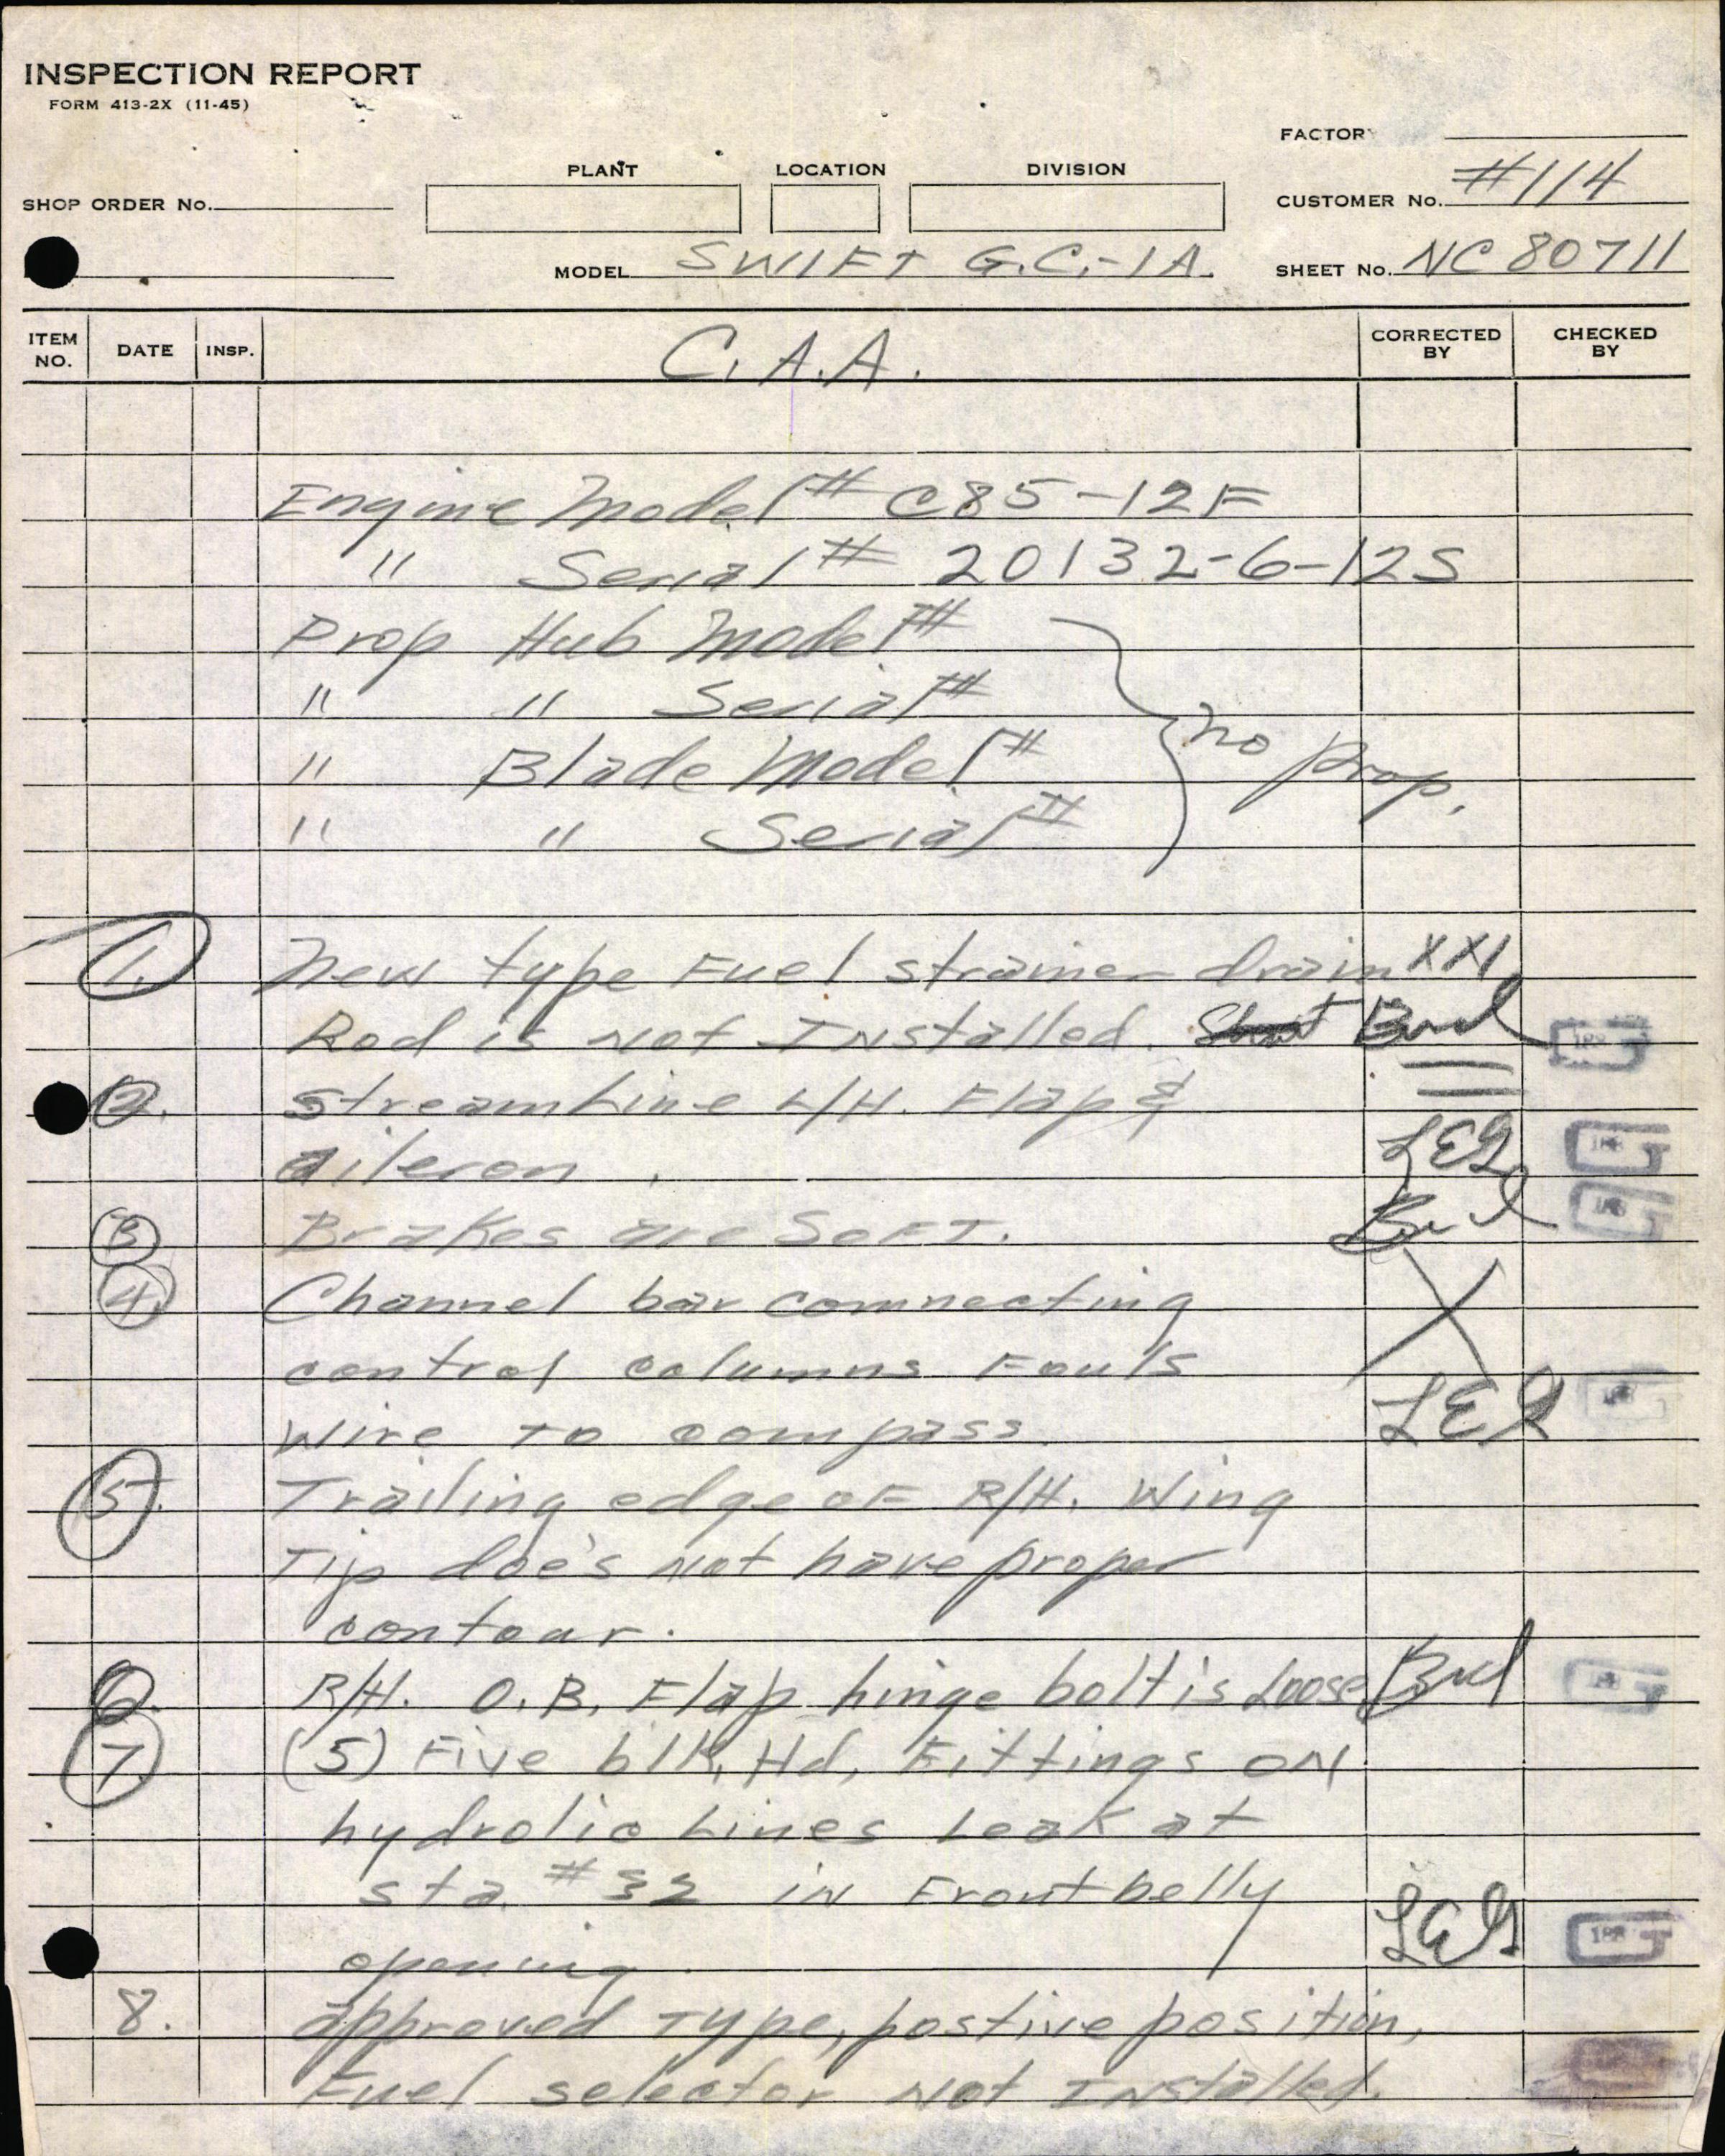 INSPECTION REPORT
FORM 413-2X (11-45)
FACTORY
PLANT LOCATION DIVISION
SHOP ORDER No. CUSTOMER No. #114
MODEL SWIFT G.C.-1A. SHEET No. NC 80711
ITEM NO. DATE INSP. C.A.A. CORRECTED BY CHECKED BY
Engine Model # C85-12F
" Serial # 20132-6-12S
Prop Hub Model #
" " Serial #
" Blade Model # no prop.
" " Serial #
1. New type Fuel strainer drain XXX
Rod is not Installed. Bud
2. streamline L/H. Flap &
aileron. LEG
3 Brakes are SoFT. Bud
4. Channel bar connecting
control columns Fouls
wire to compass. LEG
5. Trailing edge oF R/H. Wing
Tip doe's not have proper
contour.
6. R/H. O.B. Flap hinge bolt is Loose Bud
7. (5) Five blk, Hd, Fittings on
hydrolic Lines Leak at
sta. #32 in Front belly
opening. LEG
8. approved Type, postive position,
Fuel selector not Installed.